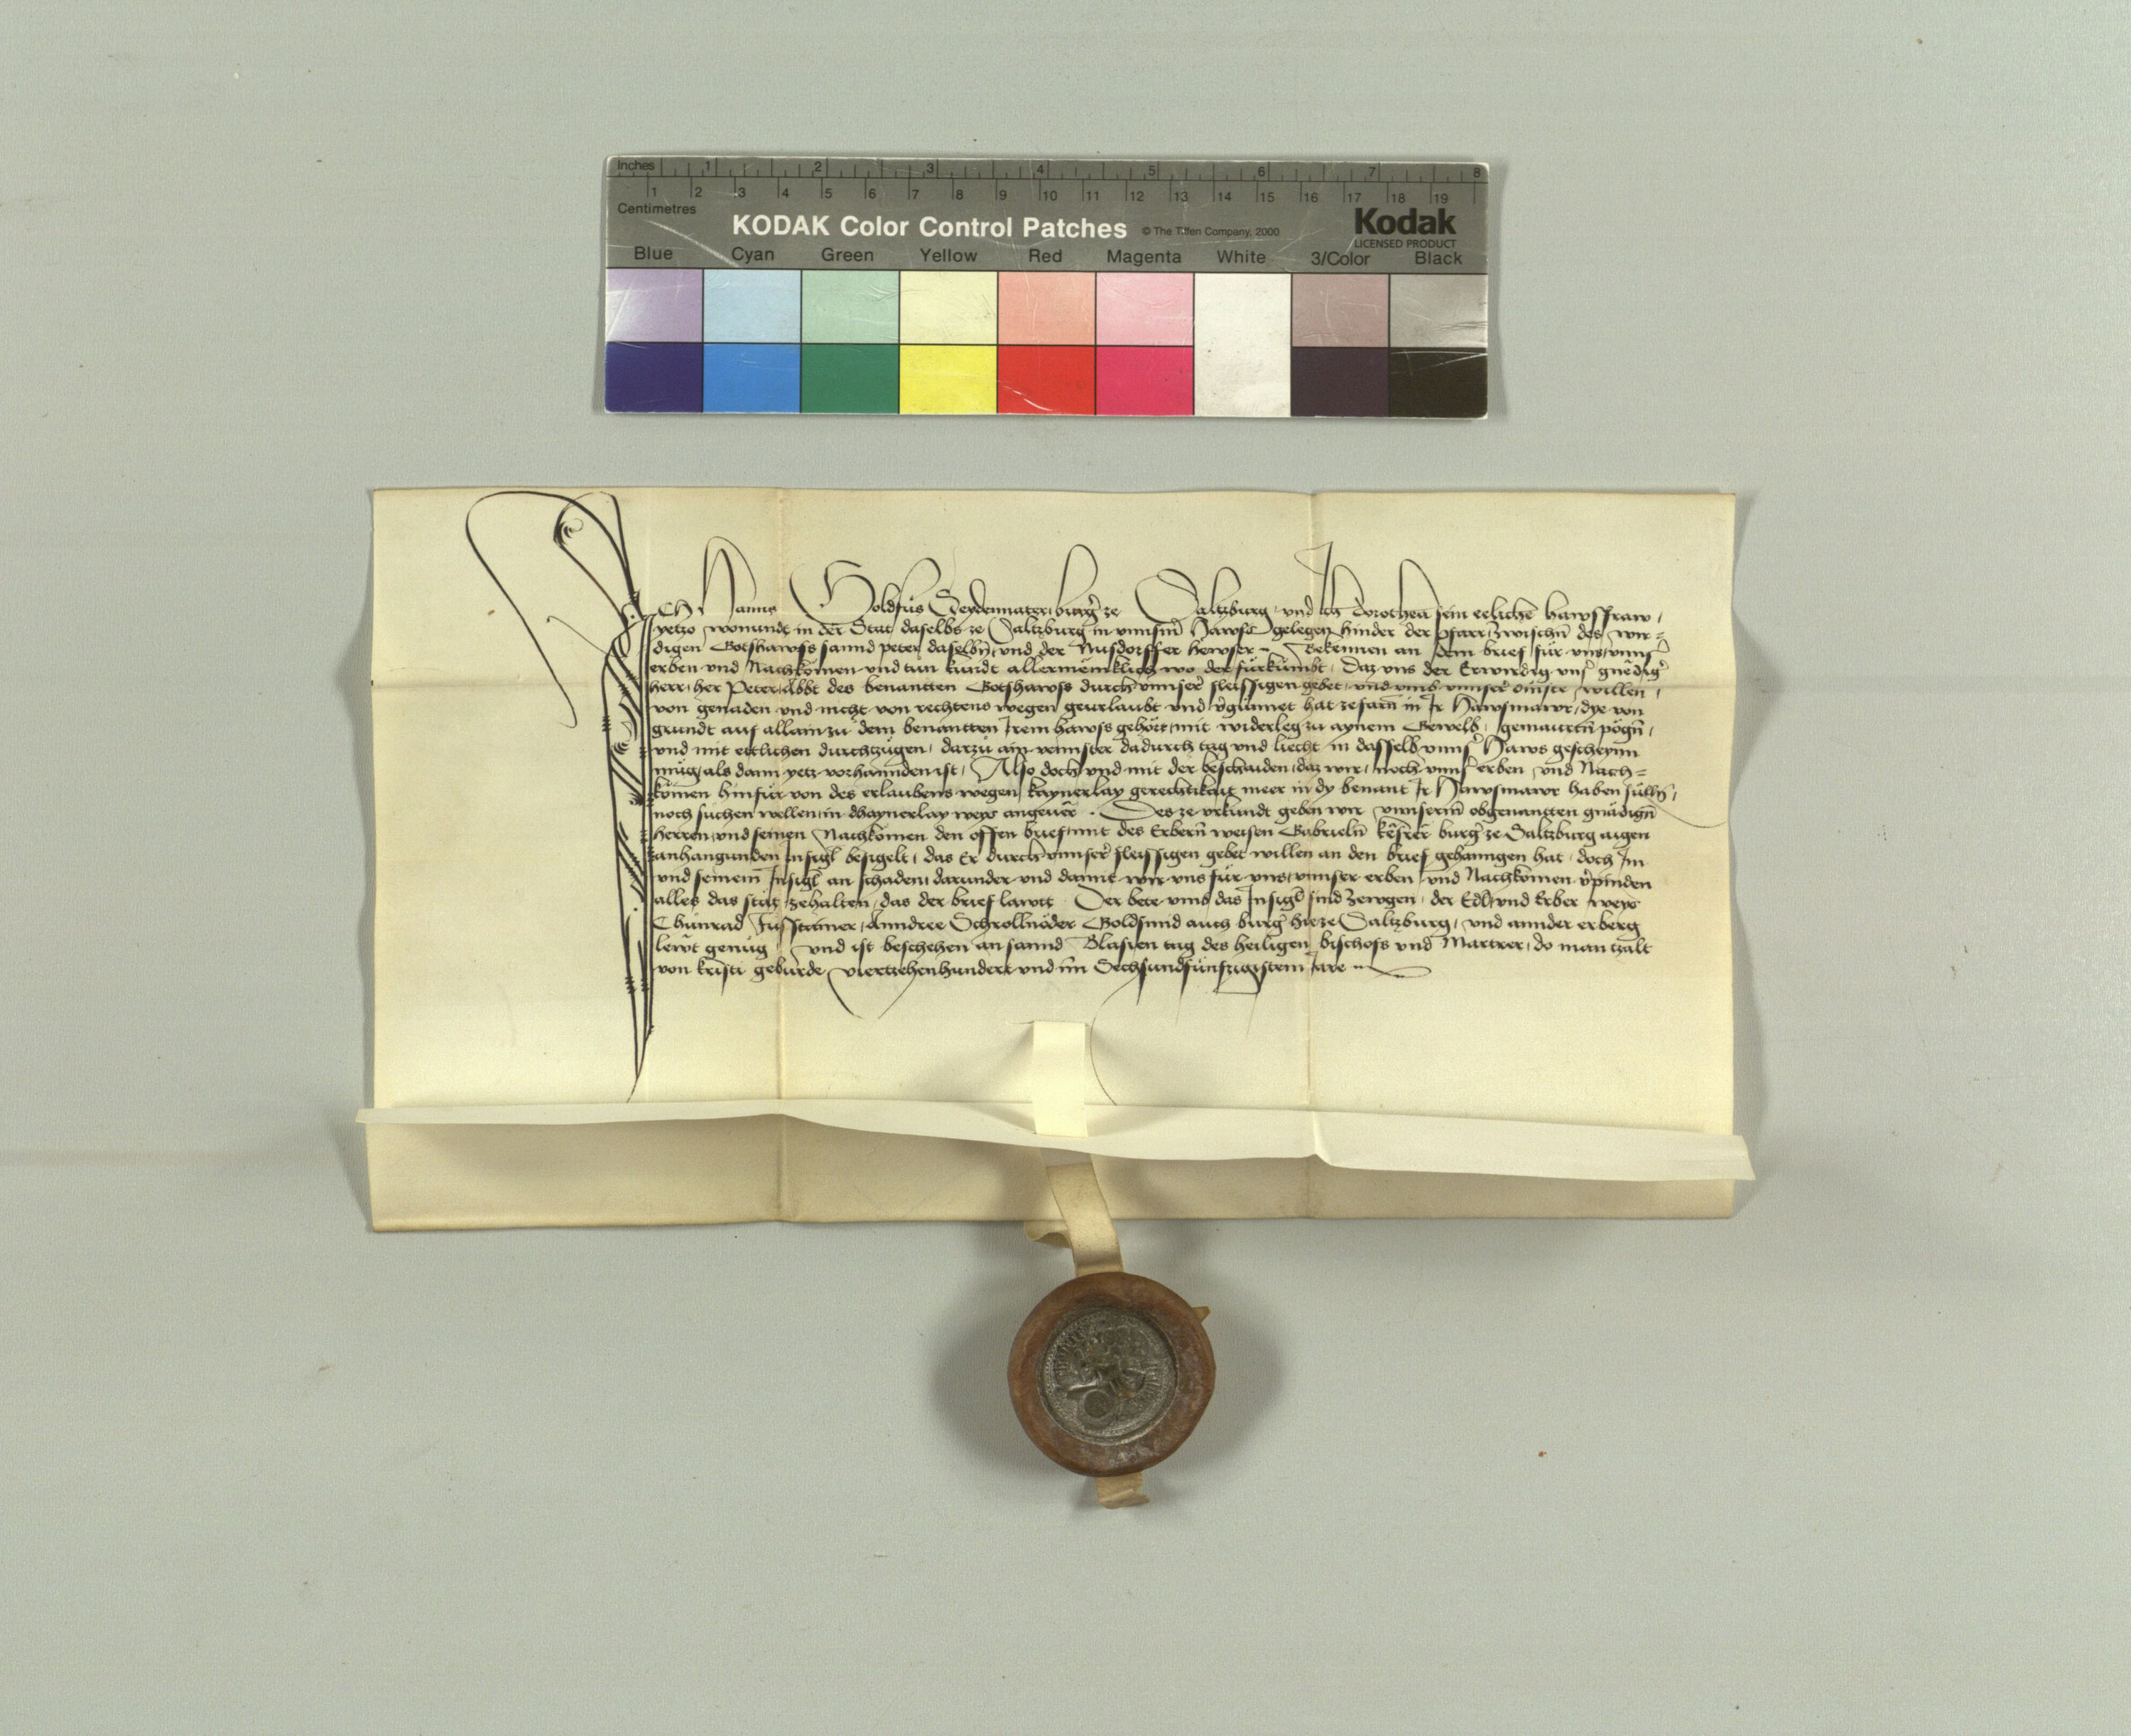 Inches 1 2 3 4 5 6 7 8
1 2 3 4 5 6 7 8 9 10 11 12 13 14 15 16 17 18 19
Centimetres
KODAK Color Control Patches © The Tiffen Company, 2000 Kodak
LICENSED PRODUCT
Blue Cyan Green Yellow Red Magenta White 3/Color Black
Ich Hanns Goldfůs Seydennater burg̓ ze Saltzburg und Ich Dorothea sein eelichē hawsfraw,
yetzo wonundt in der Stat daselbs ze Saltzburg in unnsm̄ Hawss gelegen hinder der pharr zwischn̄ des wir=
digen Gotshawss sannd peter daselbn̄ und der Nusdorffer hewser Bekennen an dem brief für uns unns̓
erben und Nachkömen und tun kundt allermenniklich wo der fürkumbt, Daz uns der Erwirdig uns̓ gnēdig̓
herr, her Peter Abbt des benantten Gotshawss durch unnser̓ fleissigen gebet und umb unnser̓ dinste willen,
von genaden und nicht von rechtens wegen geurlaubt und v̓gunnet hat zefarn̄ in Ir Hawsmawr, dye von
grundt auf allain zu dem benantten Irem hawss gehört, mit widerleg zu aynem Gewelb, gemaurtn̄ pögn̄,
und mit ettlichen durchzügen, darzu ain vennster dadurch tag und liecht in dasselb unns̓ Haws gescheynn
müg, als dann yetz vorhannden ist, Also doch und mit der beschaiden, daz wir, noch unns̓ erben und Nach=
kömen hinfür von des erlaubens wegen kaynerlay gerechtikait meer in dy benant Ir Hawsmawr haben sulln̄,
noch suchen wellen, in dhaynerlay weys ongeuēr. Des ze urkundt geben wir unnserm̄ obgenantten gnädign̄
herren und seinen Nachkömen den offen brief mit des Erbern̄ weisen Gabrieln̄ burg̓ ze Saltzburg aigen
anhangunden Insigl besigelt, das Er durch unnser̓ fleissigen gebet willen an den brief gehanngen hat, doch Im
und seinem̄ Insigl an schaden, darunder und damit wir uns für uns, unnser erben und Nachkömen v̓pinden
alles das stät zehalten, das der brief lawtt. Der bete umb das Insigl sind zewgen, der Edl und Erber weys
Chunrad Anndree Goldsmid auch burg̓ hie ze Saltzburg, und annder erberg
lewt genug, und ist beschehen an sannd Blasien tag des heiligen bischofs und Martrer, do man tzalt
von kristi geburde viertzehenhundert und im Sechsundfünfzigistem Jare